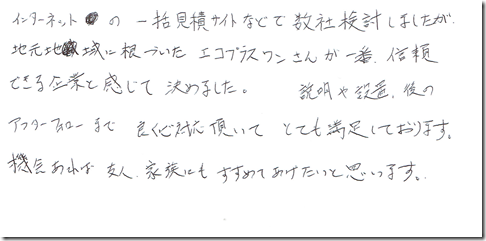 インターネットの 一括見積サイトなどで 数社検討しましたが、
地元地域に根づいた エコプラスワンさんが一番、信頼
できる企業と感じて 決めました。 説明や設置、後の
アフターフォローまで 良くご対応頂いて とても満足しております。
機会あれば 友人、家族にも すすめてあげたいと思います。